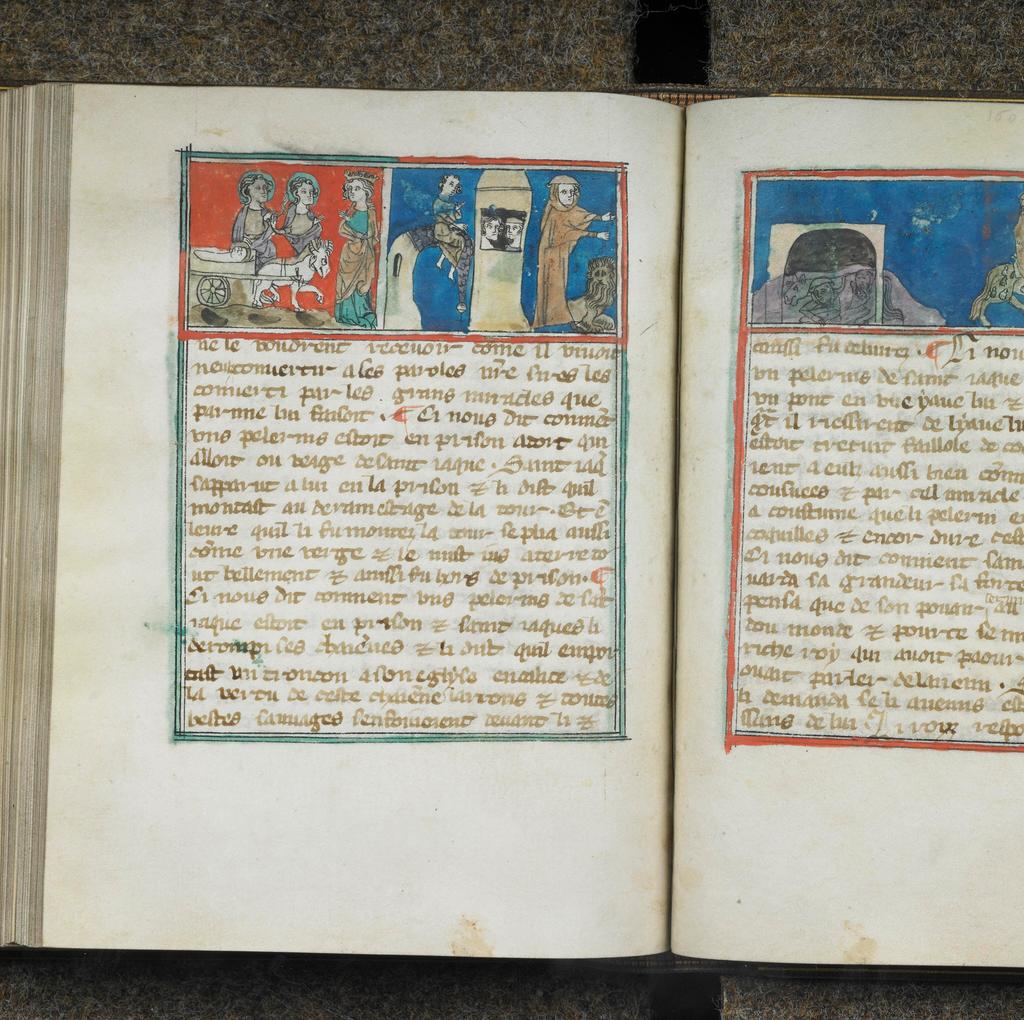 ne le voudrent recevoir come il vivoit
convertir a les paroles n̄re sires les
converti par les grans miracles que
par me lui faisoit. ¶ Ci nous dit comment
uns pelerins estoit en prison a tort qui
alloit ou veage de saint iaque. Saint iaq̄
sapparut a lui en la prison ⁊ li dist quil
montast au derain estage de la tour. Et ē
leure quil li fu montez la tour se plia aussi
cōme vne verge ⁊ le mist ius a terre to
ut bellement ⁊ ainssi fu hors de prison. ¶
Ci nous dit comment vns pelerins de sāt
iaque estoit en prison ⁊ saint iaques li
derompi ses chaiēnes ⁊ li dist quil empor
tast un troncon a son eglyse en galice ⁊ de
la vertu de ceste chaiēne larrons ⁊ toutes
bestes sauuages senfouioient devant li ⁊
ainssi fu delivrez. ¶ Ci nou
vn pelerins de saint iaque
vn pont en vne yaue lui ⁊
q̄t il rissirent de lyaue lu
estoit trestout
ient a eulz aussi bien cōm
cousues ⁊ par cel miracle
a coustume que li pelerin e
coquilles ⁊ encor dure cest
Ci nous dit comment sain
garda sa grandeur sa force
pensa que de son pouair
dou monde ⁊ pour ce se mi
riche roy qui avoit paour
ouait parler de lanemi.
li demanda se li
sires de lui ¶ li roix respo
160